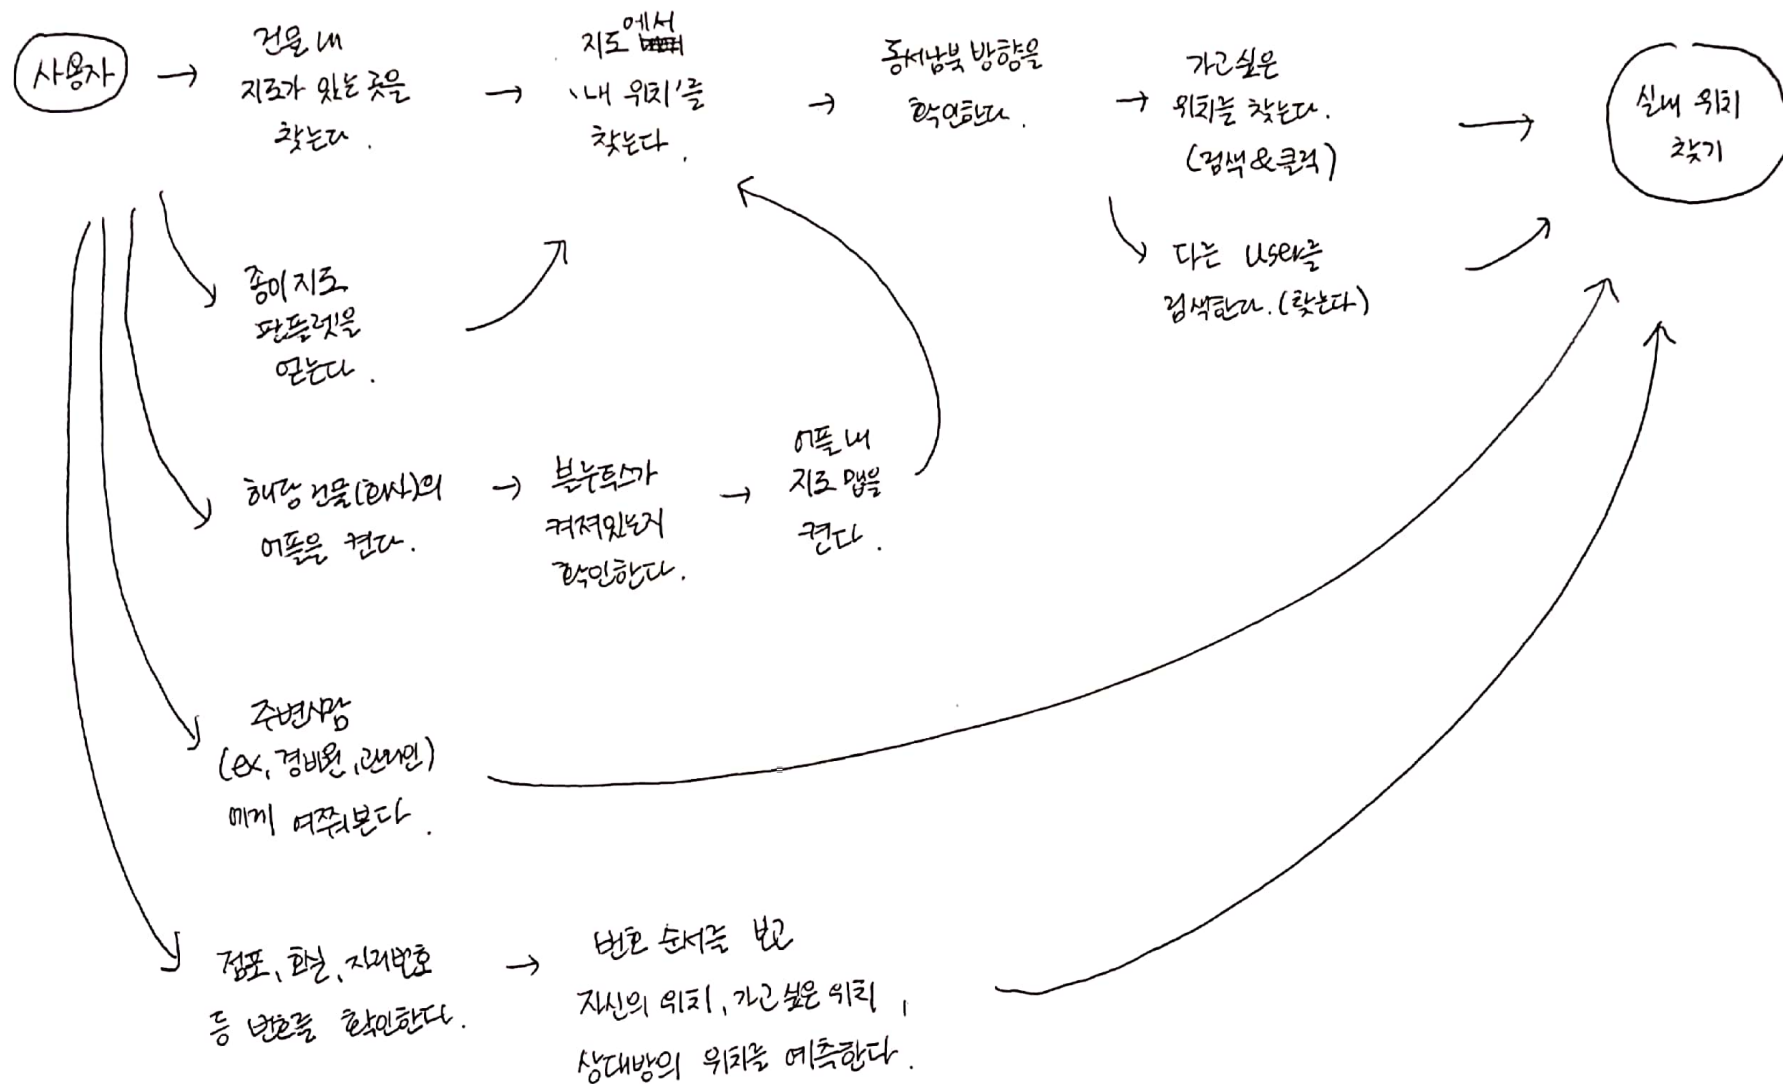 사용자
건물 내
지도가 있는 곳을
찾는다.
지도에서
'내 위치'를
찾는다.
동서남북 방향을
확인한다.
가고싶은
위치를 찾는다.
(검색&클릭)
실내 위치
찾기
다른 user를
검색한다.(찾는다)
종이 지도
팜플렛을
얻는다.
해당 건물(회사)의
어플을 켠다.
블루투스가
켜져있는지
확인한다.
어플 내
지도 맵을
켠다.
주변사람
(ex, 경비원, 관리인)
에게 여쭤본다.
점포, 호실, 자리번호
등 번호를 확인한다.
번호 순서를 보고
자신의 위치, 가고 싶은 위치,
상대방의 위치를 예측한다.